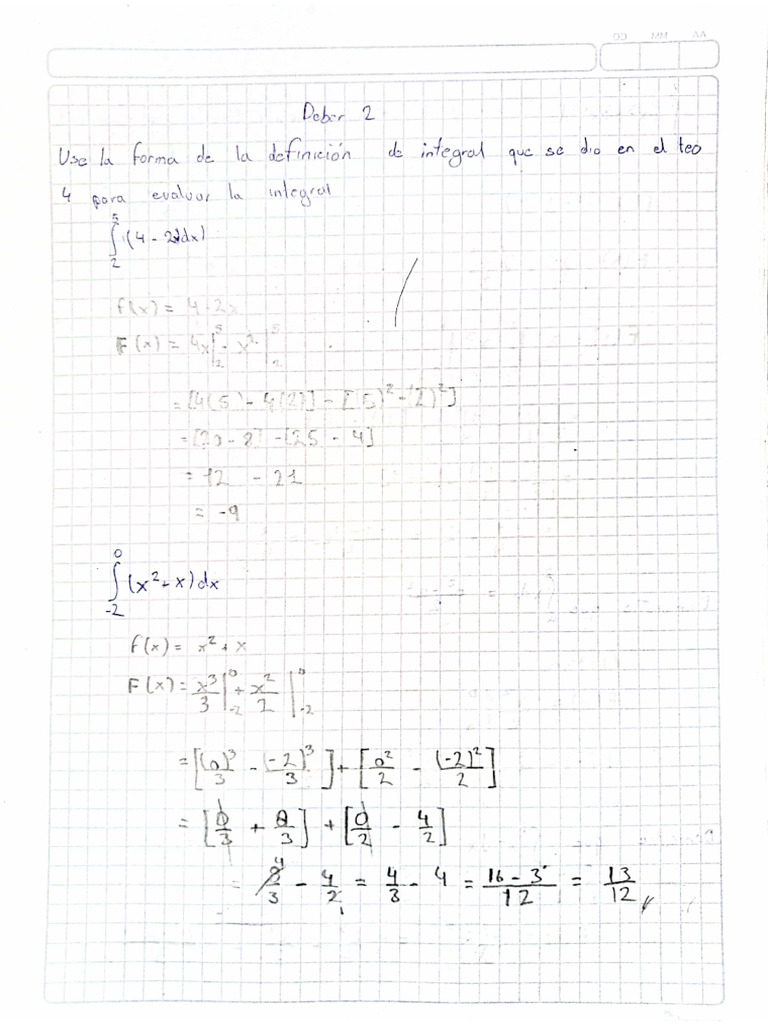 DD MM AA
Deber 2
Use la forma de la definición de integral que se dio en el teo
4 para evaluar la integral
∫₂⁵ (4 - 2xdx)
f(x) = 4-2x
F(x) = 4x|₂⁵ - x²|₂⁵
= [4(5) - 4(2)] - [(5)² - (2)²]
= [20 - 8] - [25 - 4]
= 12 - 21
= -9
∫₋₂⁰ (x² + x) dx
f(x) = x² + x
F(x) = x³/3 |₋₂⁰ + x²/2 |₋₂⁰
= [(0)³/3 - (-2)³/3] + [0²/2 - (-2)²/2]
= [0/3 + 8/3] + [0/2 - 4/2]
= 8/3 - 4/2 = 4/3 - 4 = 16 - 3/12 = 13/12